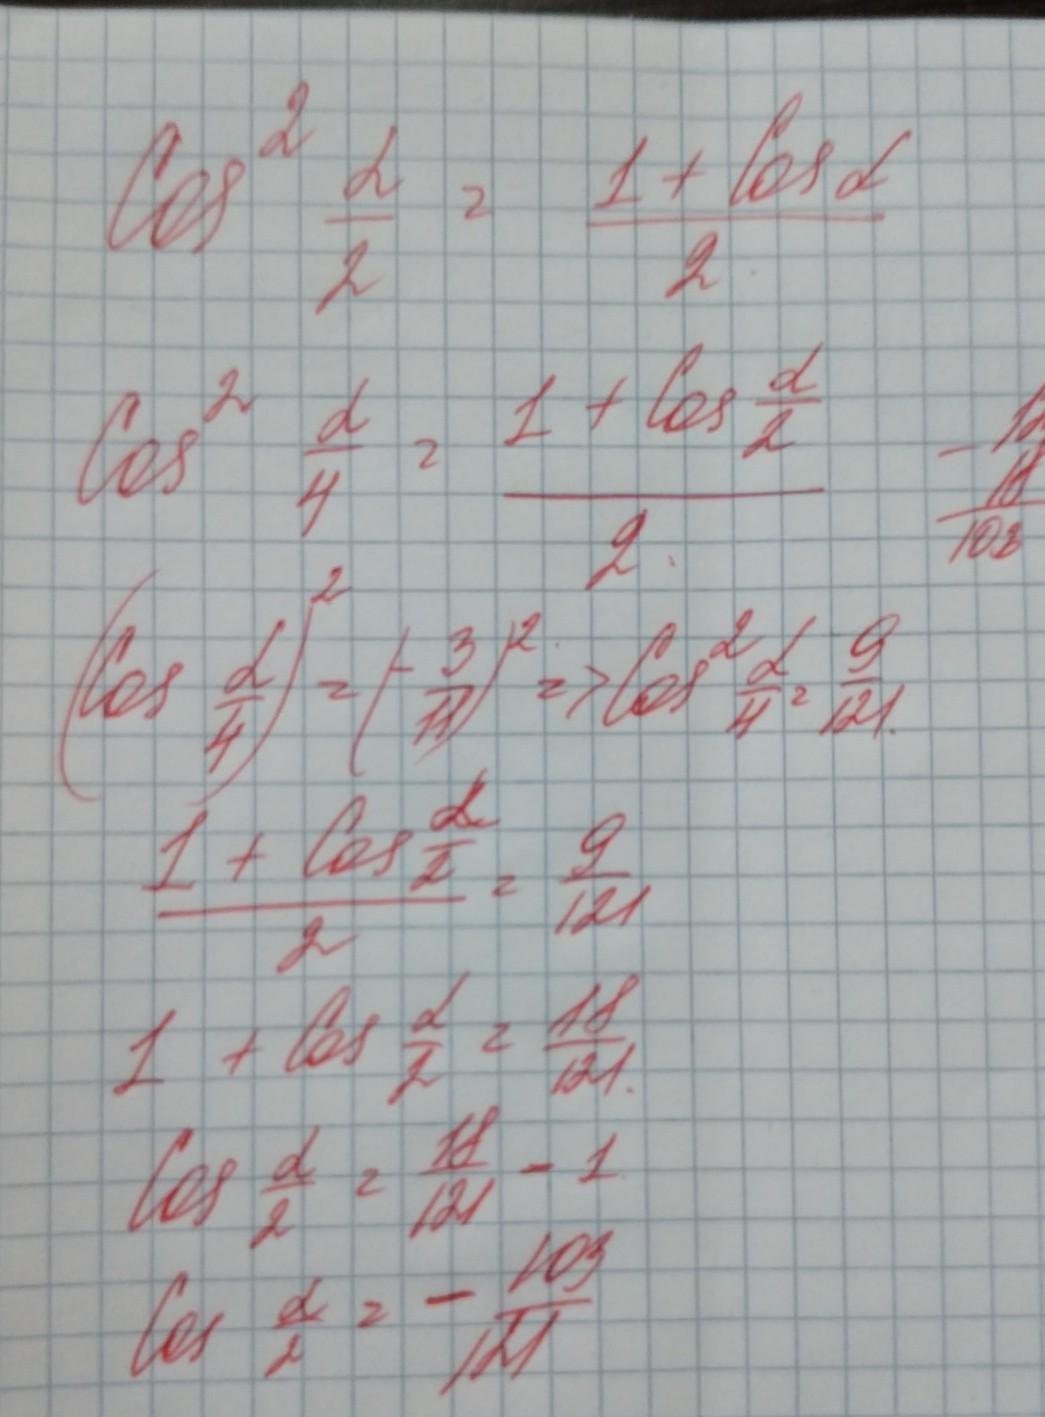 Cos² α/2 = (1 + Cos α)/2
Cos² α/4 = (1 + Cos α/2)/2
- 12
18
103
(Cos α/4)² = (- 3/11)² => Cos² α/4 = 9/121.
(1 + Cos α/2)/2 = 9/121
1 + Cos α/2 = 18/121.
Cos α/2 = 18/121 - 1
Cos α/2 = - 103/121